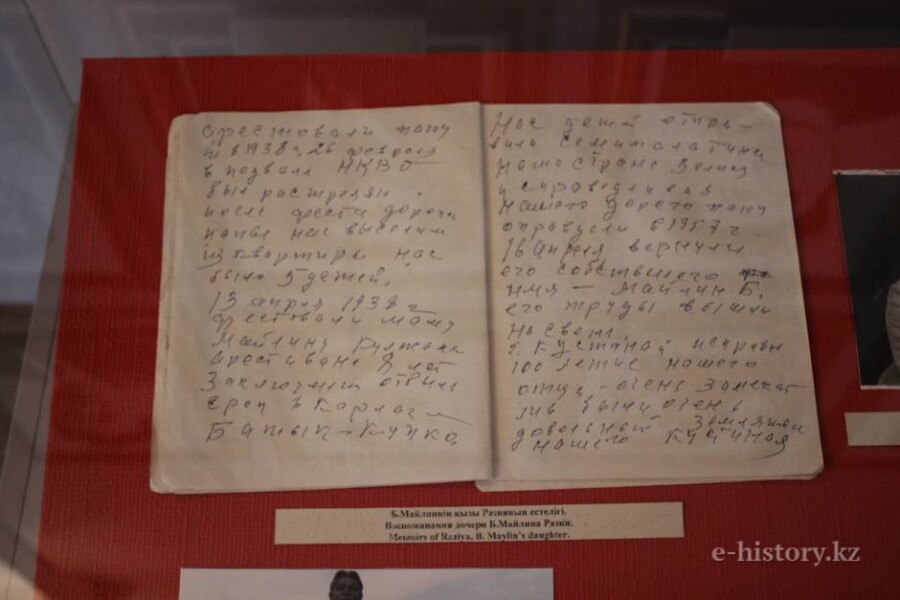 арестовали папу
в 1938 г. 26 февраля
в подвале НКВД
был растрелян.
после ареста дорогих
папы нас выселили
из квартиры нас
было 5 детей.
13 апреля 1938 г
арестовали маму
Майлину Кулжамал
арестиване 8 лет
Заключения отбыла
срок в Карлаге
Батык
Нас детей отпра-
вили Семипалатинск
Наша Страна Велика
и справедливая
нашего дорого папу
оправдали в 1957 г
16 апреля вернули
его собственого
имя - Майлин Б.
его труды вышли
на свет.
г. Кустанай
100 летие нашего
отца - очень
очень
довольный земляками
нашего
Б.Майлиннің қызы Разияның естелігі.
Воспоминания дочери Б.Майлина Разии.
Memoirs of Raziya, B. Maylin's daughter.
e-history.kz